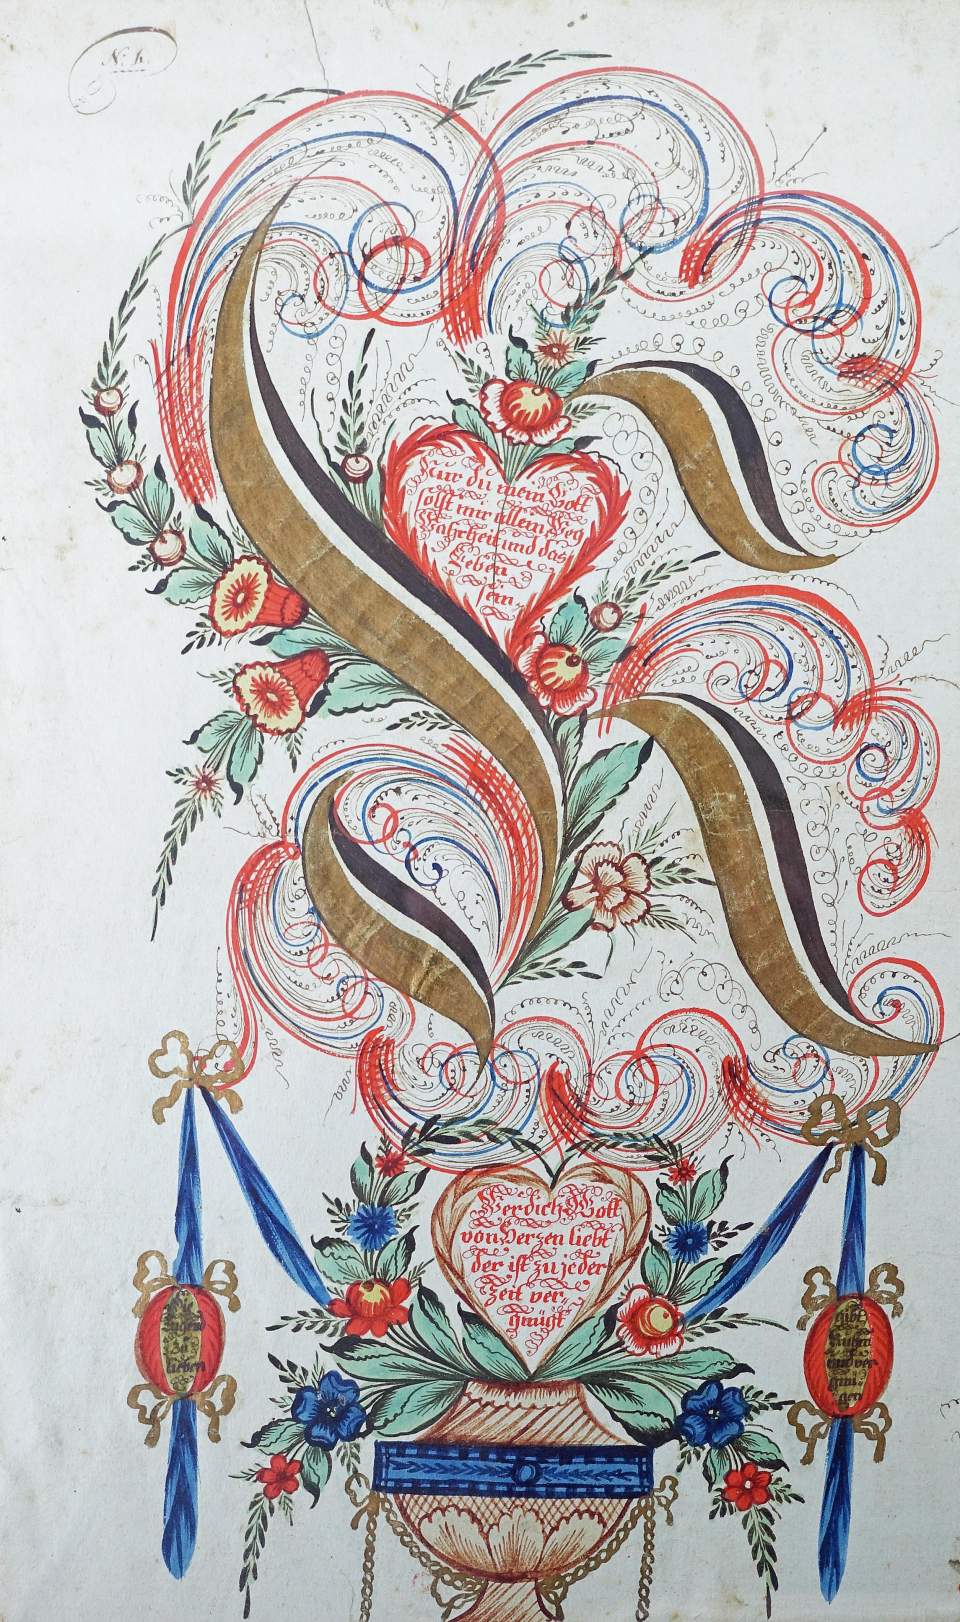 N: h.
Nur du mein Gott
solst mir allein Weg
Wahrheit und das
Leben
sein.
Wer dich O Gott
von Herzen liebt
der ist zu jeder
Zeit ver,
gnügt
Tugend
zu
lieben
gibt
und ver
gnü,
gen